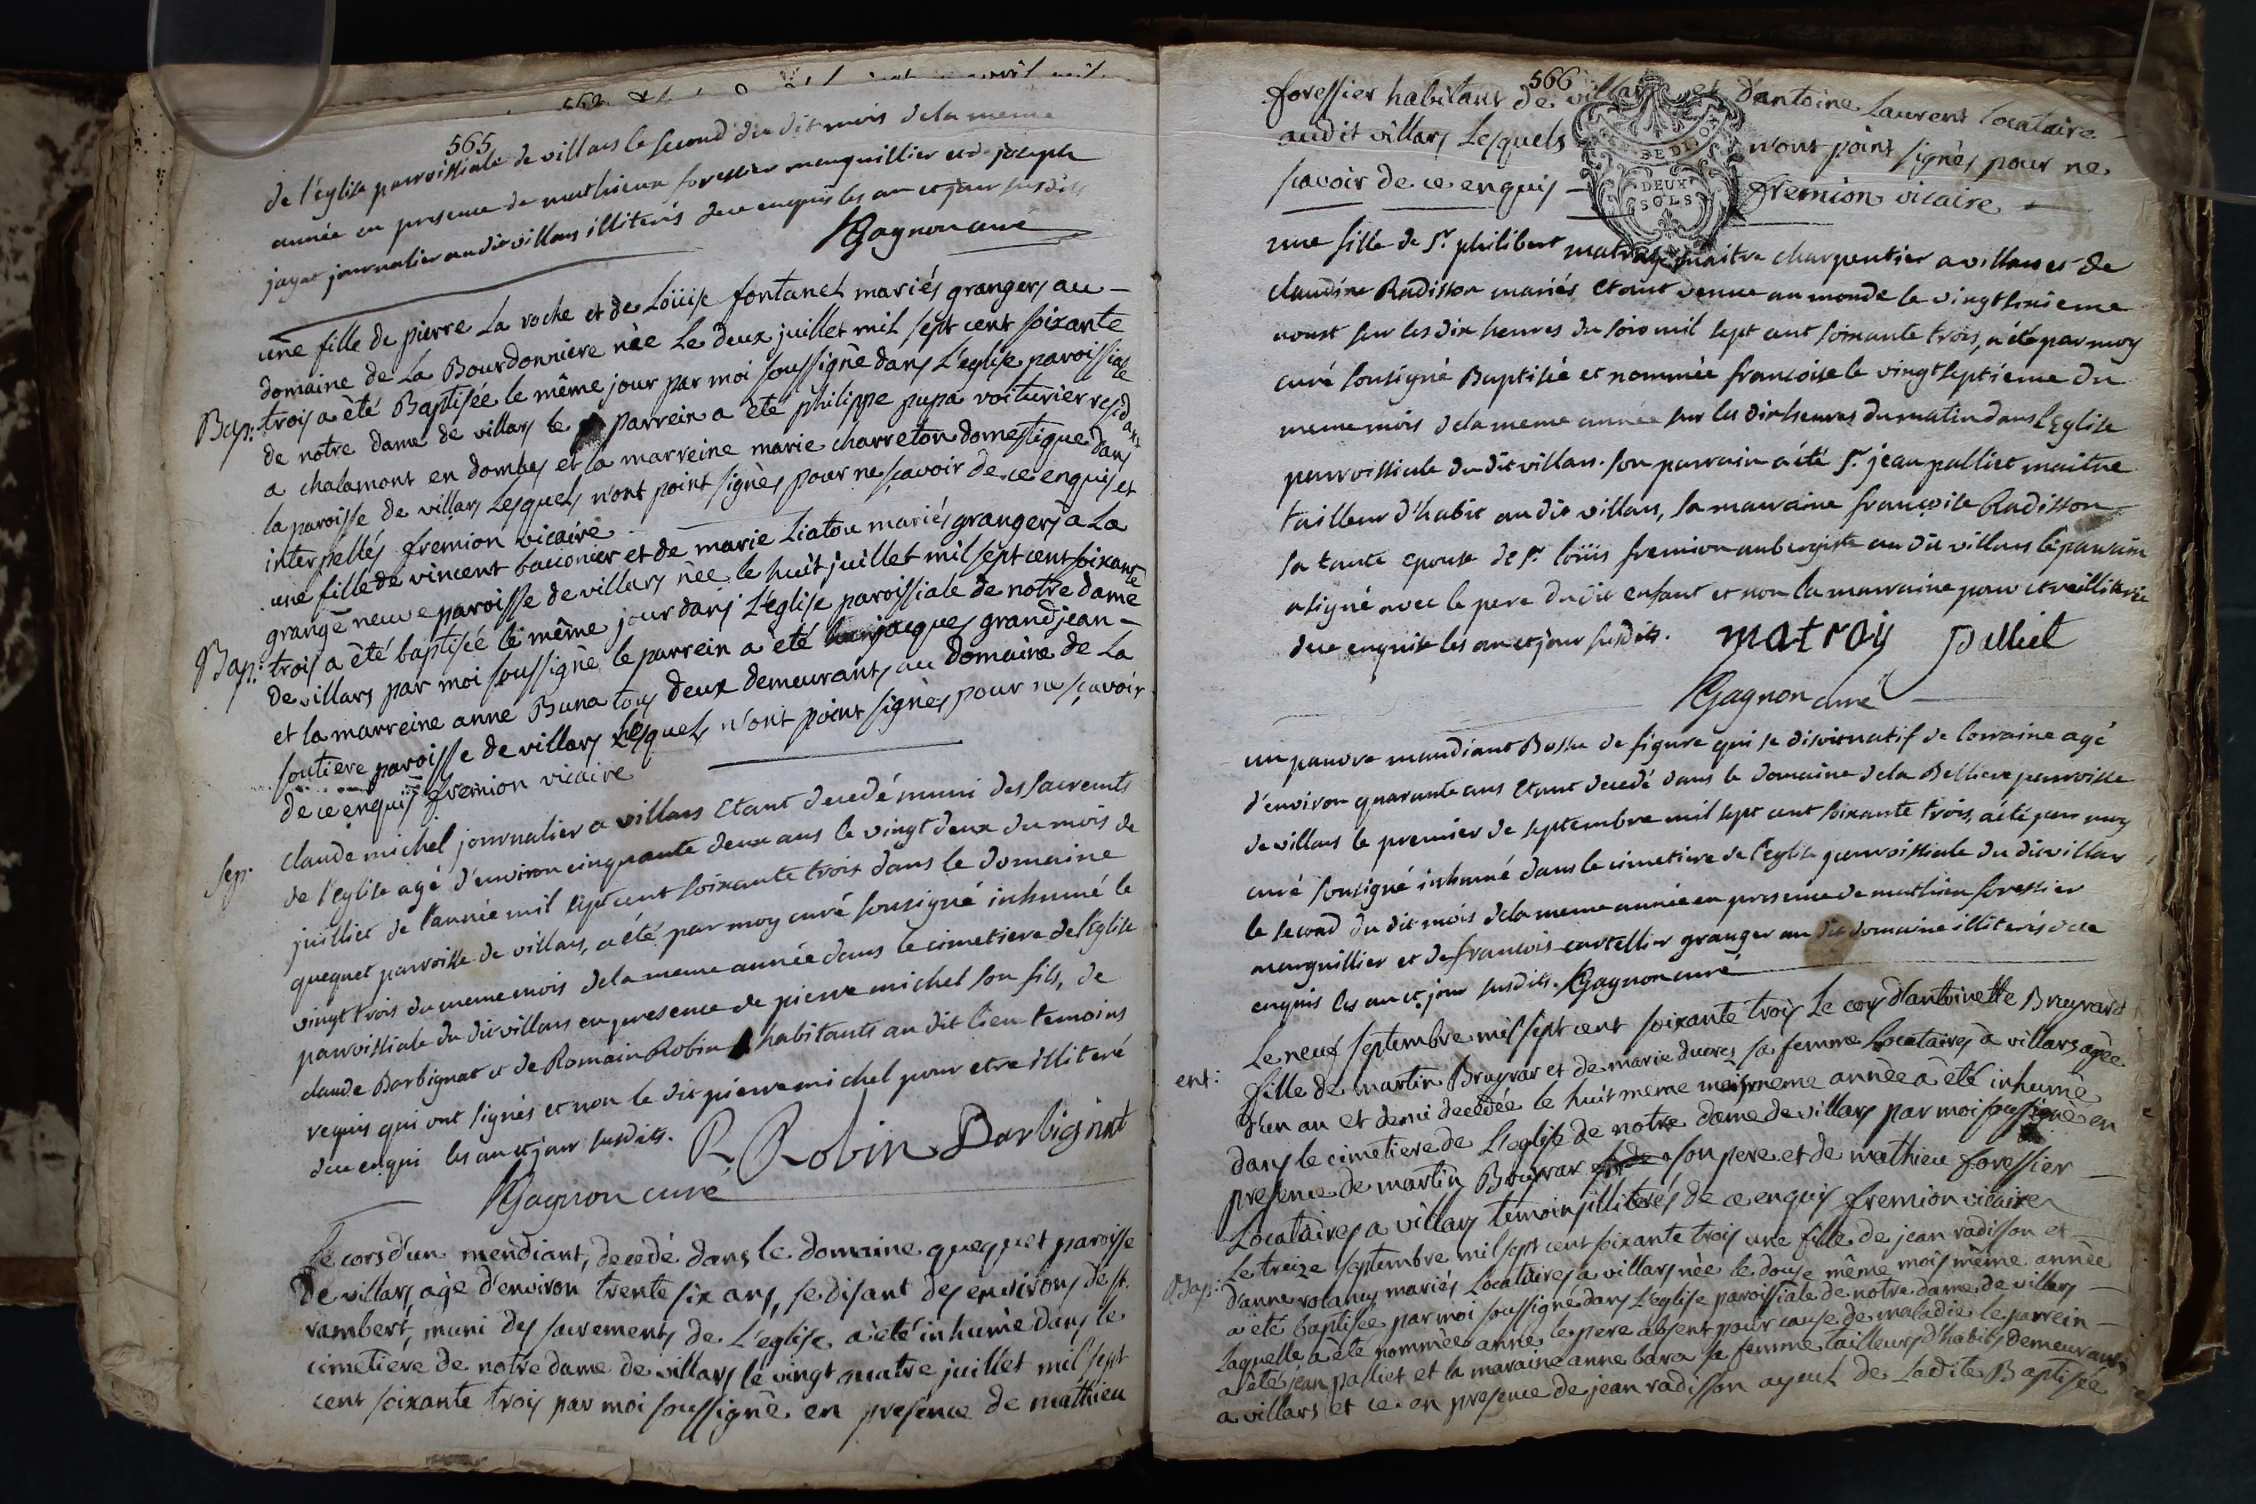 565
de l'église parroissiale de villars le second du dit mois dela meme
année en presence de mathieu foressier marguillier et de joseph
jayat journalier au dit villars illiterés dece enquis les an et jour susdits
Gagnon curé
une fille de pierre La roche et de Loüise fontanel mariés grangers au
domaine de La Bourdonniere née Le deux juillet mil sept cent soixante
Bap: trois a été Baptisée le même jour par moi soussigné dans L'eglise paroissiale
de notre dame de villars le parrein a été philippe pupa voiturier residant
a chalamont en dombes et la marreine marie charreton domestique dans
la paroisse de villars Lesquels n'ont point signés pour ne sçavoir de ce enquis et
interpellés fremion vicaire
une fille de vincent bauonier et de marie Liatou mariés grangers a La
grange neuve paroisse de villars née le huit juillet mil sept cent soixante
Bap: trois a été baptisée le même jour dans L'eglise paroissiale de notre dame
de villars par moi soussigné le parrein a été jacques grandjean
et la marreine anne Buna tous deux demeurants au domaine de La
soutiere paroisse de villars Lesquels n'ont point signés pour ne sçavoir
de ce enquis fremion vicaire
Sep. Claude michel journalier a villars etant decedé muni des sacremts
de l'eglise agé d'environ cinquante deux ans le vingt deux du mois de
juilliet de l'année mil sept cent soixante trois dans le domaine
quequet parroisse de villars, a été par moy curé sousigné inhumé le
vingt trois du meme mois dela meme année dans le cimetiere de l'eglise
parroissiale du dit villars en presence de pierre michel son fils, de
claude Barbignat et de Romain Robin habitants au dit lieu temoins
requis qui ont signés et non le dit pierre michel pour etre illiteré
dece enqui les an et jour susdits.
R Robin Barbignat
Gagnon curé
Le cors d'un mendiant, decedé dans le domaine quequet paroisse
de villars age d'environ trente six ans, se disant des environs de st.
rambert, muni des sacrements de L'eglise a été inhumé dans le
cimetiere de notre dame de villars le vingt quatre juillet mil sept
cent soixante trois par moi soussigné en presence de mathieu
566
foressier habitant de villars et d'antoine Laurent locataire
audit villars Lesquels n'ont point signés pour ne
sçavoir de ce enquis fremion vicaire
DE DIJON
DEUX
SOLS
une fille de Sr. philibert matray maitre charpentier a villars et de
claudine Radisson mariés etant venue au monde le vingt sixieme
aoust sur les dix heures du soir mil sept cent soixante trois, a été par moy
curé sousigné Baptisée et nommée francoise le vingt septieme du
meme mois dela meme année sur les dix heures du matin dans l'Eglise
parroissiale du dit villars. son parrain a été Sr. jean palliet maitre
tailleur d'habit au dit villars, sa marraine françoise Radisson
sa tante epouse de Sr. loüis fremion aubergiste au dit villars le parrain
a signé avec le pere du dit enfant et non la marraine pour etre illiterée
dece enquise les an et jour susdits. matray Palliet
Gagnon curé
un pauvre mandiant Bossu de figure qui se disoit natif de lorraine agé
d'environ quarante ans etant decedé dans le domaine dela Belliere parroisse
de villars le premier de septembre mil sept cent soixante trois, a été par moy
curé sousigné inhumé dans le cimetiere de l'eglise parroissiale du dit villars
le second du dit mois dela meme année en presence de mathieu foressier
marguillier et de francois cartellier granger au dit domaine illiterés dece
enquis les an et jour susdits. Gagnon curé
Le neuf septembre mil sept cent soixante trois Le cors d'antoinette Bruyrard
ent: fille de martin Bruyrar et de marie ducres sa femme Locataires a villars agée
d'un an et demi decedée le huit meme mois meme année a été inhumé
dans le cimetiere de L'eglise de notre dame de villars par moi soussigné en
presence de martin Bruyrar son pere et de mathieu foressier
Locataires a villars temoins illiterés de ce enquis fremion vicaire
Le treize septembre mil sept cent soixante trois une fille de jean radisson et
Bap: d'anne rolancy mariés Locataires a villars née le douse même mois même année
a été baptisée par moi soussigné dans L'eglise paroissiale de notre dame de villars
Laquelle a été nommée anne le pere absent pour cause de maladie le parrein
a été jean palliet et la maraine anne bara sa femme tailleurs d'habits demeurants
a villars et ce en presence de jean radisson ayeul de Ladite Baptisée